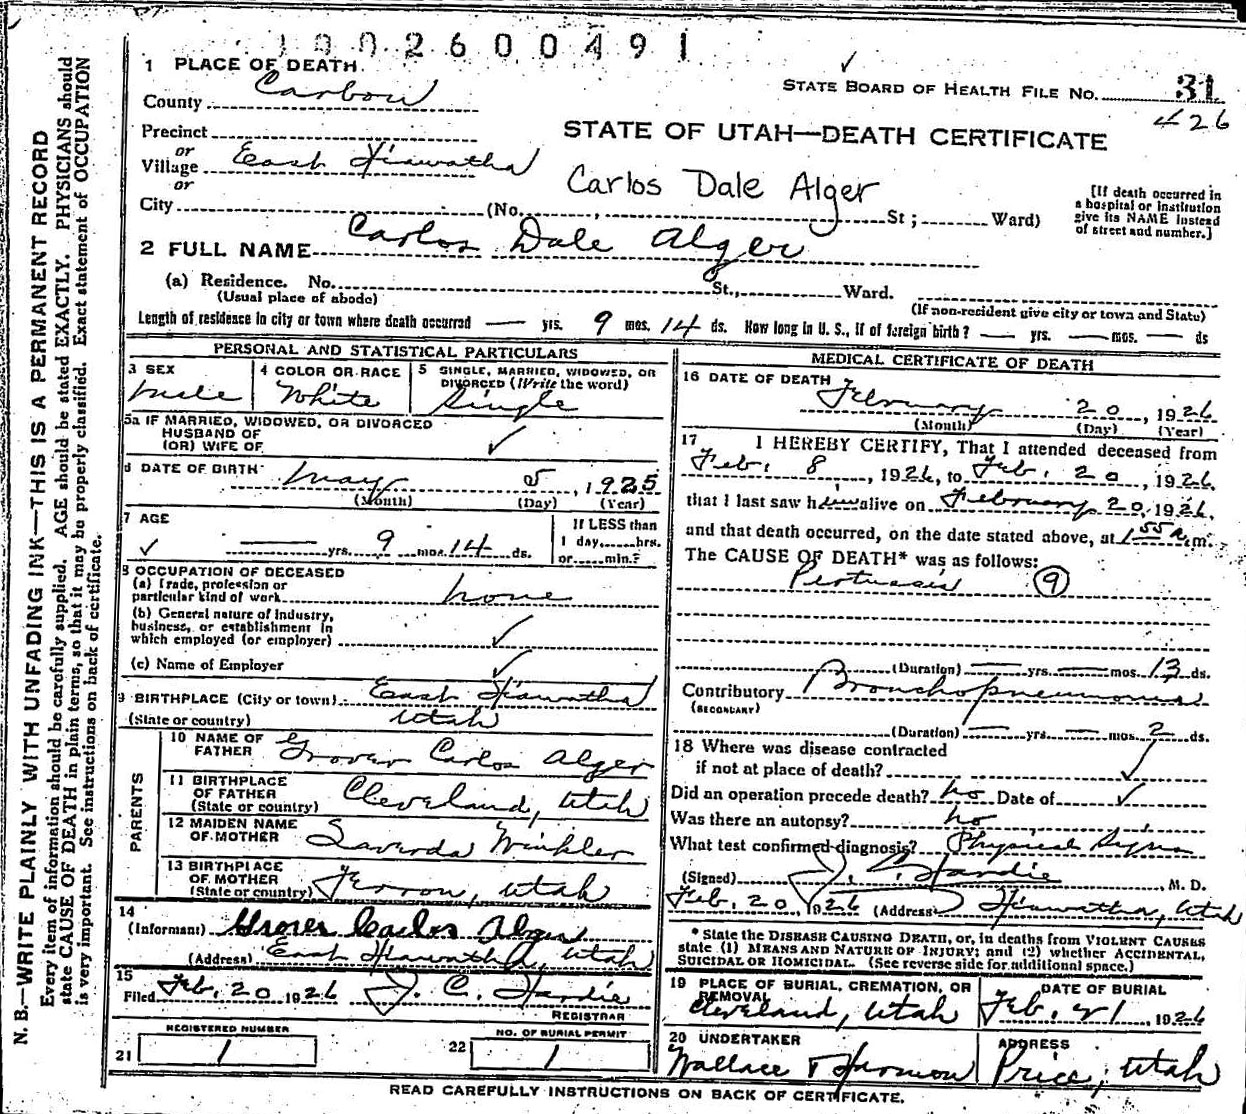 1002600491
1 PLACE OF DEATH
STATE BOARD OF HEALTH FILE NO. 31
426
County Carbon
STATE OF UTAH—DEATH CERTIFICATE
Precinct
or
Village East Hiawatha
or
Carlos Dale Alger
[If death occurred in a hospital or institution give its NAME instead of street and number.]
City (No. , St ; Ward)
2 FULL NAME Carlos Dale Alger
(a) Residence. No. St., Ward.
(Usual place of abode) (If non-resident give city or town and State)
Length of residence in city or town where death occurred — yrs. 9 mos. 14 ds. How long in U. S., if of foreign birth? — yrs. — mos. — ds
PERSONAL AND STATISTICAL PARTICULARS
3 SEX
male
4 COLOR OR RACE
White
5 SINGLE, MARRIED, WIDOWED, OR DIVORCED (Write the word)
Single
5a IF MARRIED, WIDOWED, OR DIVORCED
HUSBAND OF
(OR) WIFE OF ✓
6 DATE OF BIRTH
May 5, 1925
(Month) (Day) (Year)
7 AGE
✓ — yrs. 9 mos. 14 ds.
If LESS than
1 day, hrs.
or min.?
8 OCCUPATION OF DECEASED
(a) Trade, profession or
particular kind of work none
(b) General nature of Industry,
business, or establishment in
which employed (or employer) ✓
(c) Name of Employer ✓
9 BIRTHPLACE (City or town) East Hiawatha
(State or country) Utah
PARENTS
10 NAME OF FATHER Grover Carlos Alger
11 BIRTHPLACE OF FATHER (State or country) Cleveland, Utah
12 MAIDEN NAME OF MOTHER Laverda Winkler
13 BIRTHPLACE OF MOTHER (State or country) Ferron, Utah
14
(Informant) Grover Carlos Alger
(Address) East Hiawatha, Utah
15
Filed Feb. 20 1926 J. C. Hardie
REGISTRAR
REGISTERED NUMBER
21 1
NO. OF BURIAL PERMIT
22 1
MEDICAL CERTIFICATE OF DEATH
16 DATE OF DEATH
February 20, 1926
(Month) (Day) (Year)
17 I HEREBY CERTIFY, That I attended deceased from
Feb. 8, 1926, to Feb. 20, 1926,
that I last saw him alive on February 20, 1926,
and that death occurred, on the date stated above, at 1 55 a.m.
The CAUSE OF DEATH* was as follows:
Pertussis 9
(Duration) — yrs. — mos. 13 ds.
Contributory Bronchopneumonia
(SECONDARY)
(Duration) — yrs. — mos. 2 ds.
18 Where was disease contracted
if not at place of death? ✓
Did an operation precede death? no Date of ✓
Was there an autopsy? no
What test confirmed diagnosis? Physical Signs
(Signed) J. C. Hardie, M. D.
Feb. 20, 1926 (Address) Hiawatha, Utah
* State the DISEASE CAUSING DEATH, or, in deaths from VIOLENT CAUSES
state (1) MEANS AND NATURE OF INJURY; and (2) whether ACCIDENTAL,
SUICIDAL OR HOMICIDAL. (See reverse side for additional space.)
19 PLACE OF BURIAL, CREMATION, OR REMOVAL
Cleveland, Utah
DATE OF BURIAL
Feb. 21, 1926
20 UNDERTAKER
Wallace & Harmon
ADDRESS
Price, Utah
READ CAREFULLY INSTRUCTIONS ON BACK OF CERTIFICATE.
N. B.—WRITE PLAINLY WITH UNFADING INK—THIS IS A PERMANENT RECORD
Every item of information should be carefully supplied. AGE should be stated EXACTLY. PHYSICIANS should
state CAUSE OF DEATH in plain terms, so that it may be properly classified. Exact statement of OCCUPATION
is very important. See instructions on back of certificate.